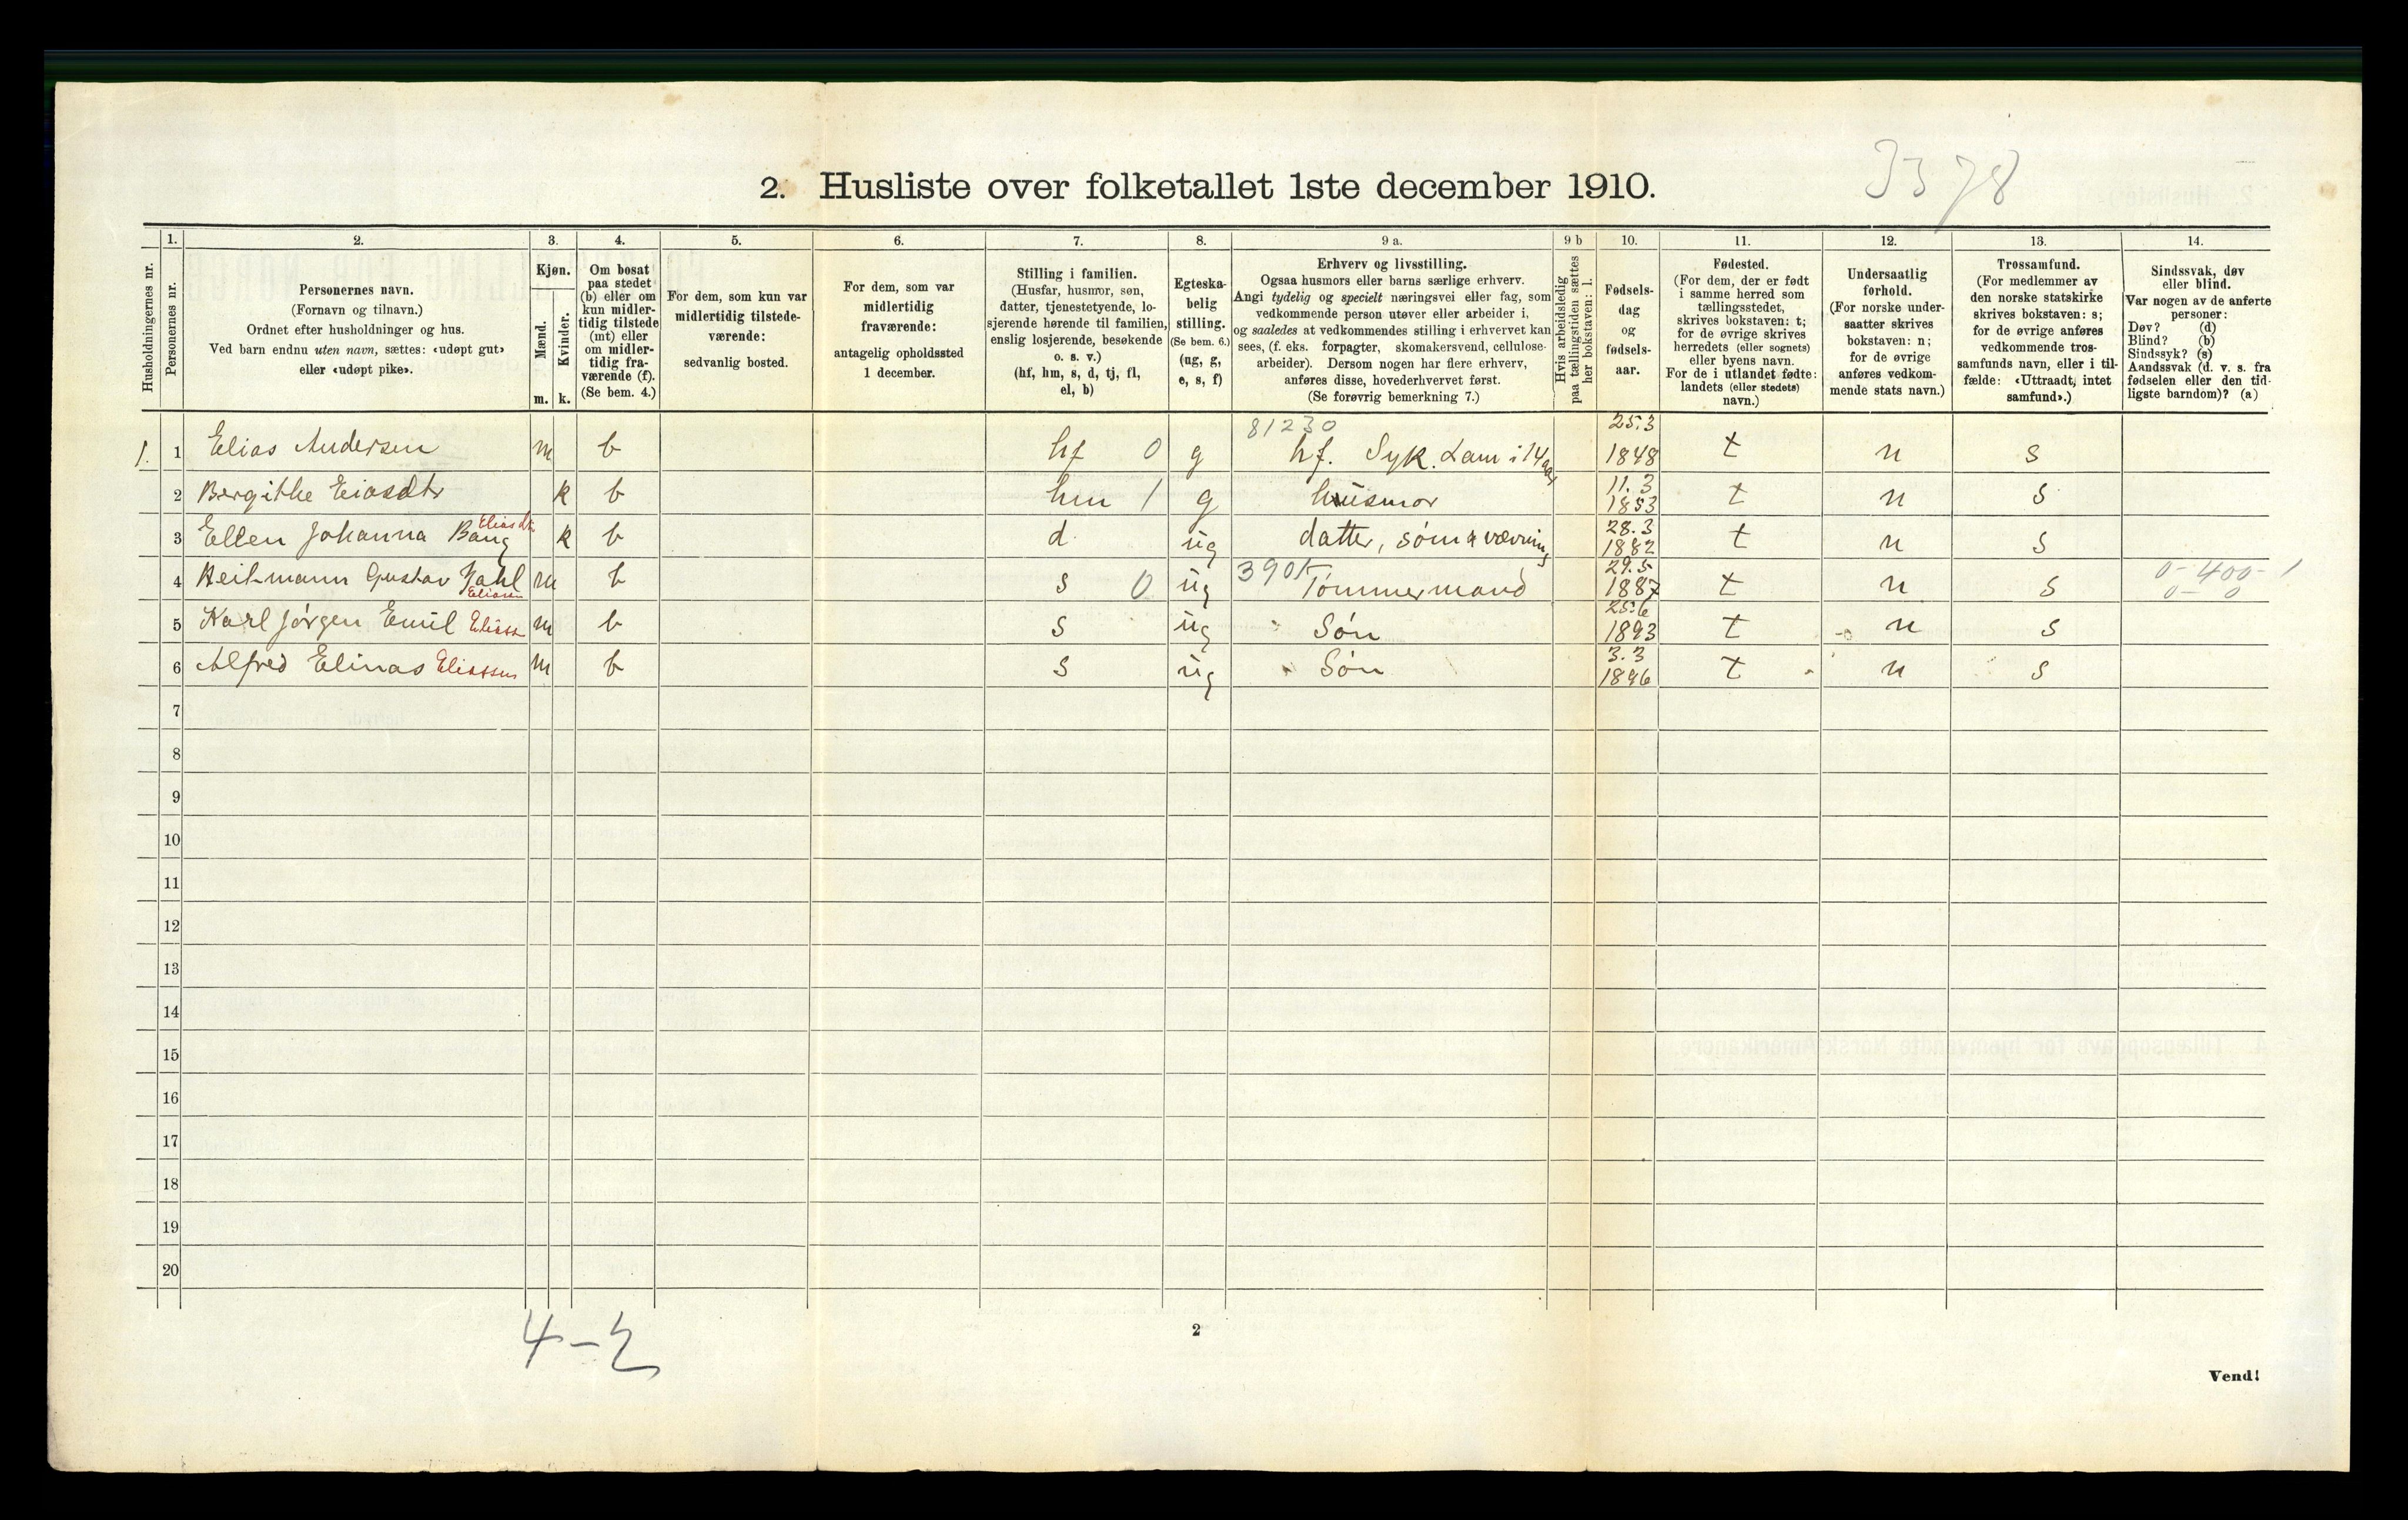 3378
2. Husliste over folketallet 1ste december 1910.
Husholdningernes nr.
1.
Personernes nr.
2.
Personernes navn.
(Fornavn og tilnavn.)
Ordnet efter husholdninger og hus.
Ved barn endnu uten navn, sættes: «udøpt gut»
eller «udøpt pike».
3.
Kjøn.
Mænd.
Kvinder.
m. k.
4.
Om bosat
paa stedet
(b) eller om
kun midler-
tidig tilstede
(mt) eller
om midler-
tidig fra-
værende (f).
(Se bem. 4.)
5.
For dem, som kun var
midlertidig tilstede-
værende:
sedvanlig bosted.
6.
For dem, som var
midlertidig
fraværende:
antagelig opholdssted
1 december.
7.
Stilling i familien.
(Husfar, husmor, søn,
datter, tjenestetyende, lo-
sjerende hørende til familien,
enslig losjerende, besøkende
o. s. v.)
(hf, hm, s, d, tj, fl,
el, b)
8.
Egteska-
belig
stilling.
(Se bem. 6.)
(ug, g,
e, s, f)
9 a.
Erhverv og livsstilling.
Ogsaa husmors eller barns særlige erhverv.
Angi tydelig og specielt næringsvei eller fag, som
vedkommende person utøver eller arbeider i,
og saaledes at vedkommendes stilling i erhvervet kan
sees, (f. eks. forpagter, skomakersvend, cellulose-
arbeider). Dersom nogen har flere erhverv,
anføres disse, hovederhvervet først.
(Se forøvrig bemerkning 7.)
9 b
Hvis arbeidsledig
paa tællingstiden sættes
her bokstaven: l.
10.
Fødsels-
dag
og
fødsels-
aar.
11.
Fødested.
(For dem, der er født
i samme herred som
tællingsstedet,
skrives bokstaven: t;
for de øvrige skrives
herredets (eller sognets)
eller byens navn.
For de i utlandet fødte:
landets (eller stedets)
navn.)
12.
Undersaatlig
forhold.
(For norske under-
saatter skrives
bokstaven: n;
for de øvrige
anføres vedkom-
mende stats navn.)
13.
Trossamfund.
(For medlemmer av
den norske statskirke
skrives bokstaven: s;
for de øvrige anføres
vedkommende tros-
samfunds navn, eller i til-
fælde: «Uttraadt, intet
samfund».)
14.
Sindssvak, døv
eller blind.
Var nogen av de anførte
personer:
Døv? (d)
Blind? (b)
Sindssyk? (s)
Aandssvak (d. v. s. fra
fødselen eller den tid-
ligste barndom)? (a)
81230 25.3
1. 1 Elias Andersen m b hf 0 g hf. Syk. Lam i 14 aar 1848 t n s
2 Bergithe Eiasdtr k b hm 1 g husmor 11.3 1853 t n s
3 Ellen Johanna Bang Eliasdtr k b d ug datter, søm & vævning 28.3 1882 t n s
4 Heitmann Gustav Dahl Eliasen m b s 0 ug 390 Tømmermand 29.5 1887 t n s 0-400-1 0-0
5 Karl Jørgen Emil Eliass m b s ug Søn 25.6 1893 t n s
6 Alfred Elinas Eliassen m b s ug Søn 3.3 1896 t n s
7
8
9
10
11
12
13
14
15
16
17
18
19
20
4-2
2
Vend!